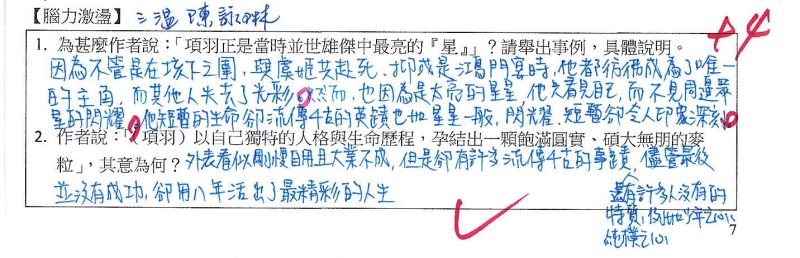 【腦力激盪】 三溫 陳詠琳
+4
1. 為甚麼作者說：「項羽正是當時並世雄傑中最亮的『星』」？請舉出事例，具體說明。
因為不管是在垓下之圍，與虞姬共赴死、抑或是鴻門宴時，他都彷彿成為了唯一
的主角，而其他人失去了光彩。然而，也因為是太亮的星星，他只看見自己，而不見周遭眾
星的閃耀，他短暫的生命卻流傳千古的英蹟也如星星一般，閃耀、短暫卻令人印象深刻。
2. 作者說：「（項羽）以自己獨特的人格與生命歷程，孕結出一顆飽滿圓實、碩大無朋的麥
粒」，其意為何？ 外表看似剛愎自用且大業不成，但是卻有許多流傳千古的事蹟，儘管最後
並沒有成功，卻用八年活出了最精彩的人生
還有許多人沒有的
特質，例如
純樸之心
7